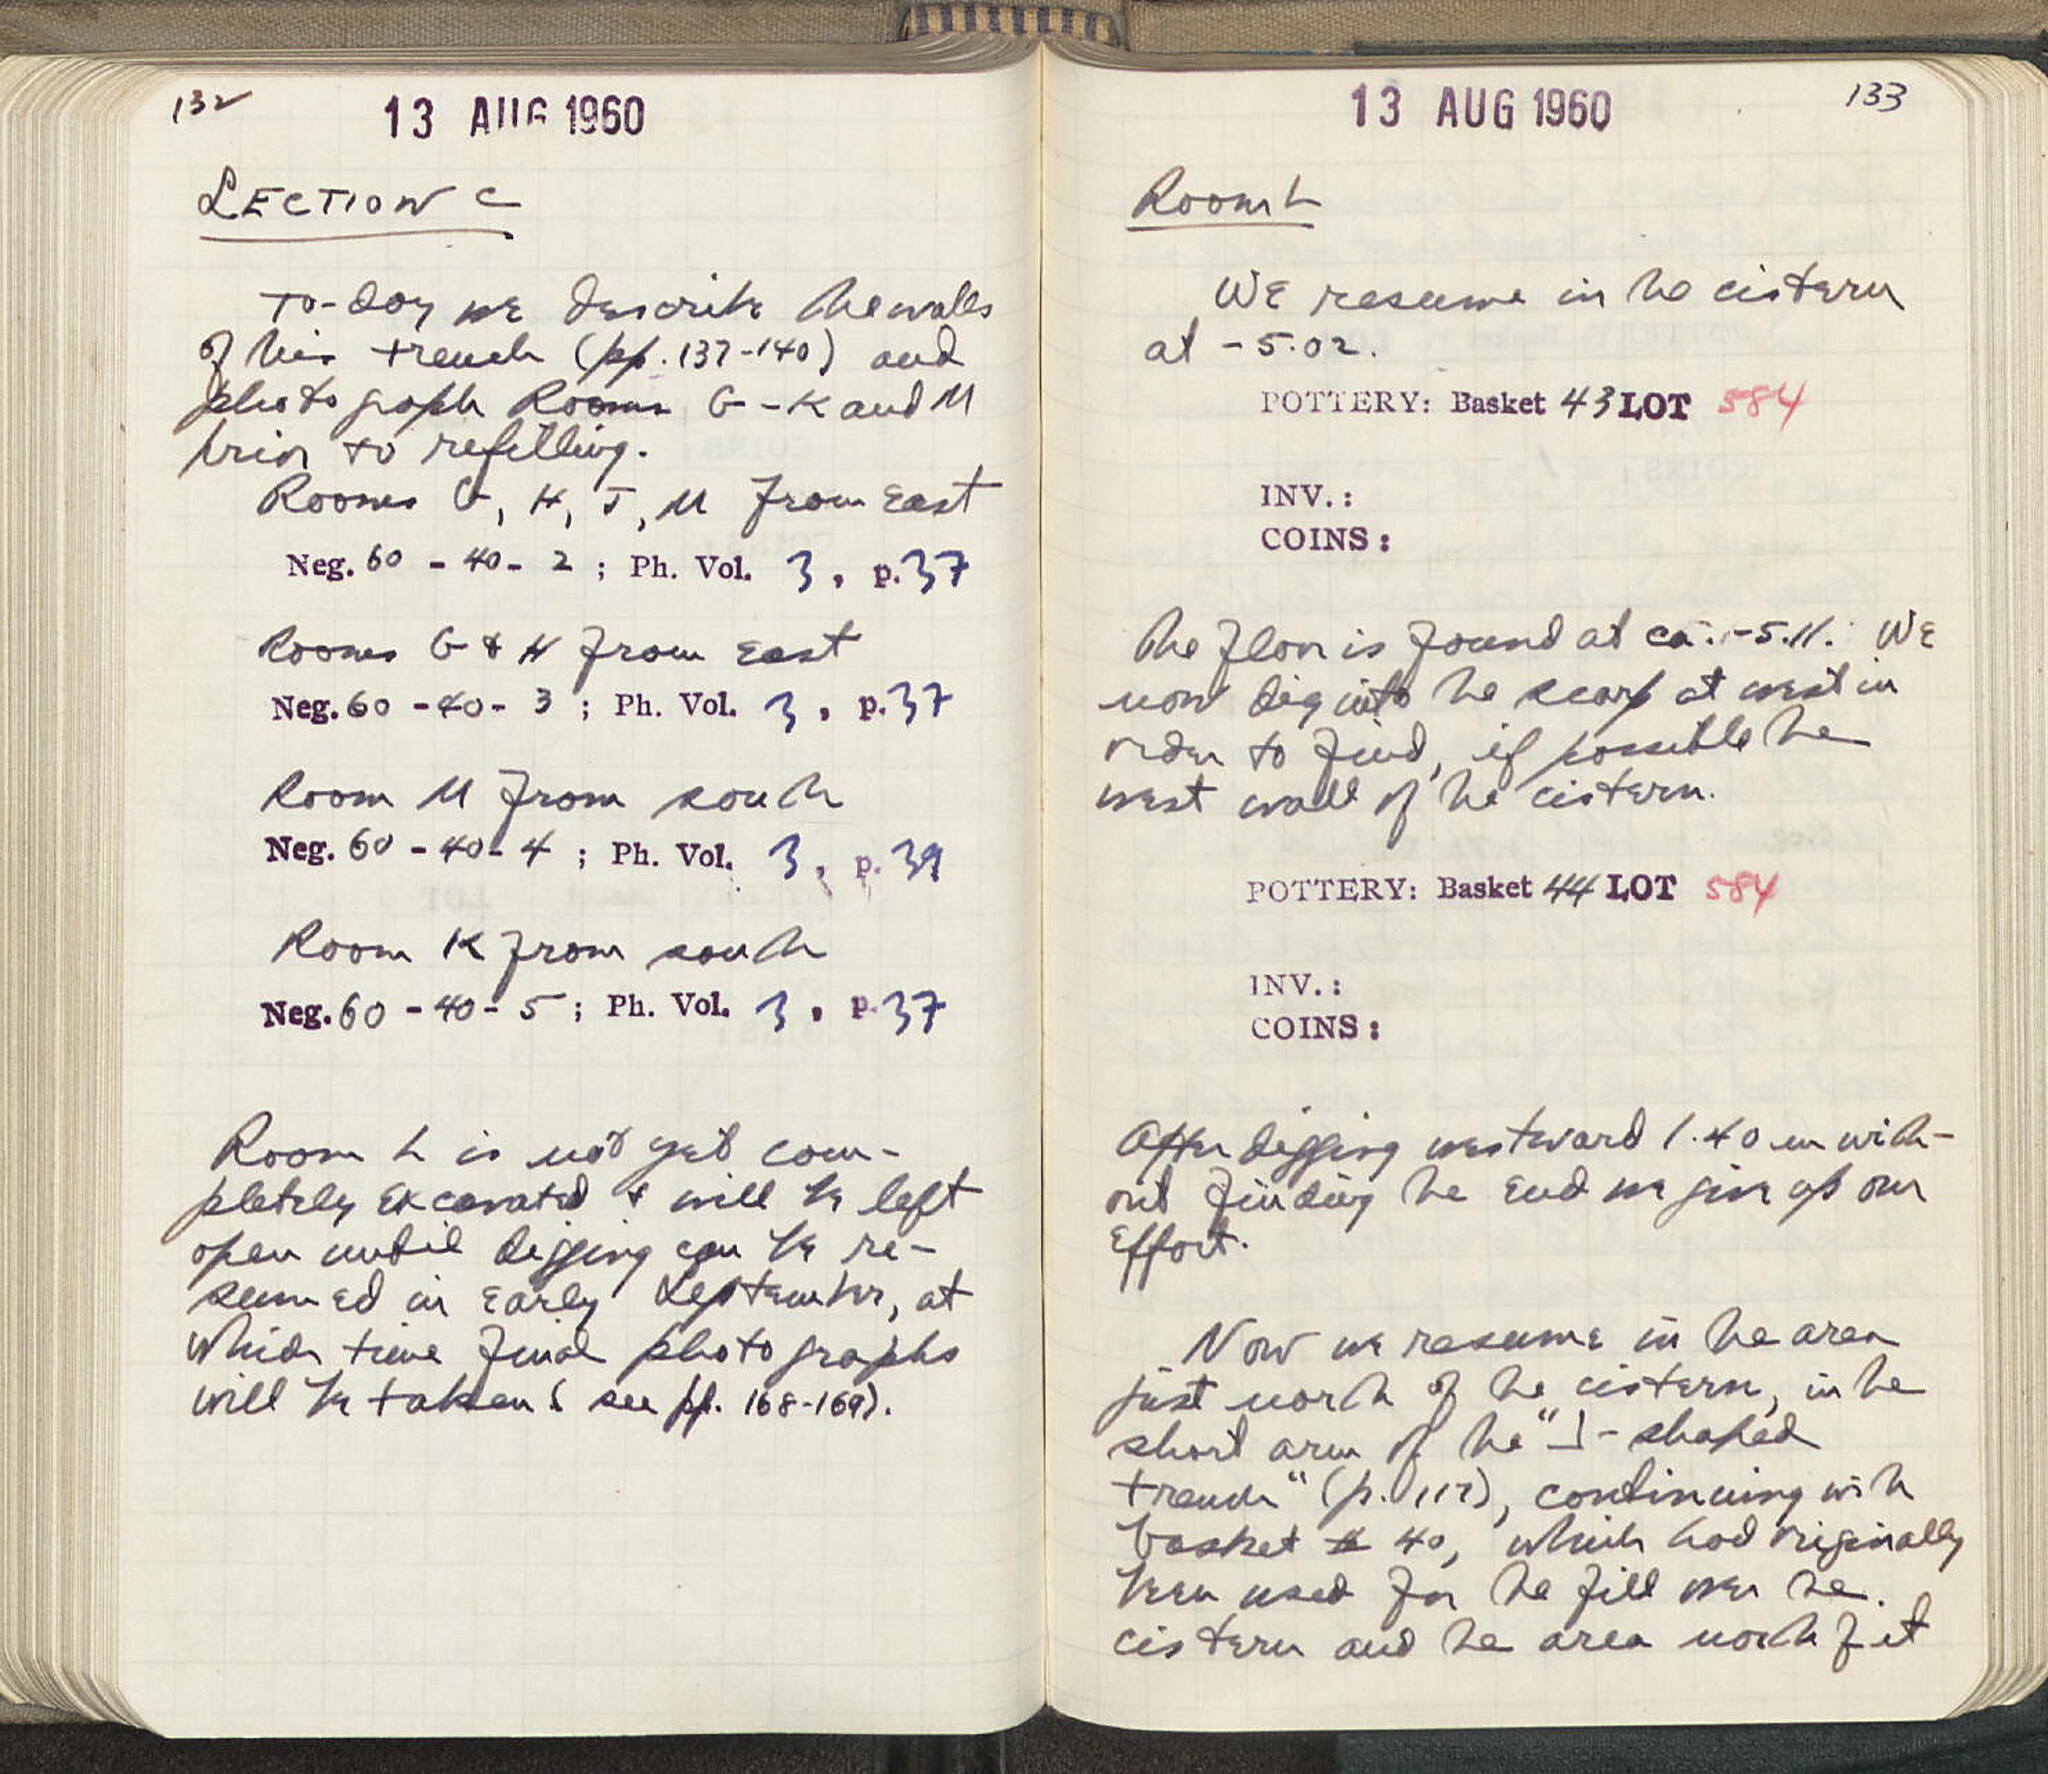 132
13 AUG 1960
SECTION C
To-day we describe the walls
of this trench (pp. 137-140) and
photograph Rooms G-K and M
prior to refilling.
Rooms G, H, J, M from East
Neg. 60 - 40 - 2 ; Ph. Vol. 3 , p. 37
Rooms G & H from East
Neg. 60 - 40 - 3 ; Ph. Vol. 3 , p. 37
Room M from south
Neg. 60 - 40 - 4 ; Ph. Vol. 3 , p. 39
Room K from south
Neg. 60 - 40 - 5 ; Ph. Vol. 3 , p. 37
Room L is not yet com-
pletely excavated & will be left
open until digging can be re-
sumed in early September, at
which time final photographs
will be taken (see pp. 168-169).
13 AUG 1960
133
Room L
We resume in the cistern
at -5.02.
POTTERY: Basket 43 LOT 584
INV.:
COINS:
The floor is found at ca. -5.11. We
now dig into the scarp at west in
order to find, if possible the
west wall of the cistern.
POTTERY: Basket 44 LOT 584
INV.:
COINS:
After digging westward 1.40 m with-
out finding the end we give up our
effort.
Now we resume in the area
just north of the cistern, in the
short arm of the "⅃-shaped
trench" (p. 117), continuing with
basket # 40, which had originally
been used for the fill over the
cistern and the area north of it